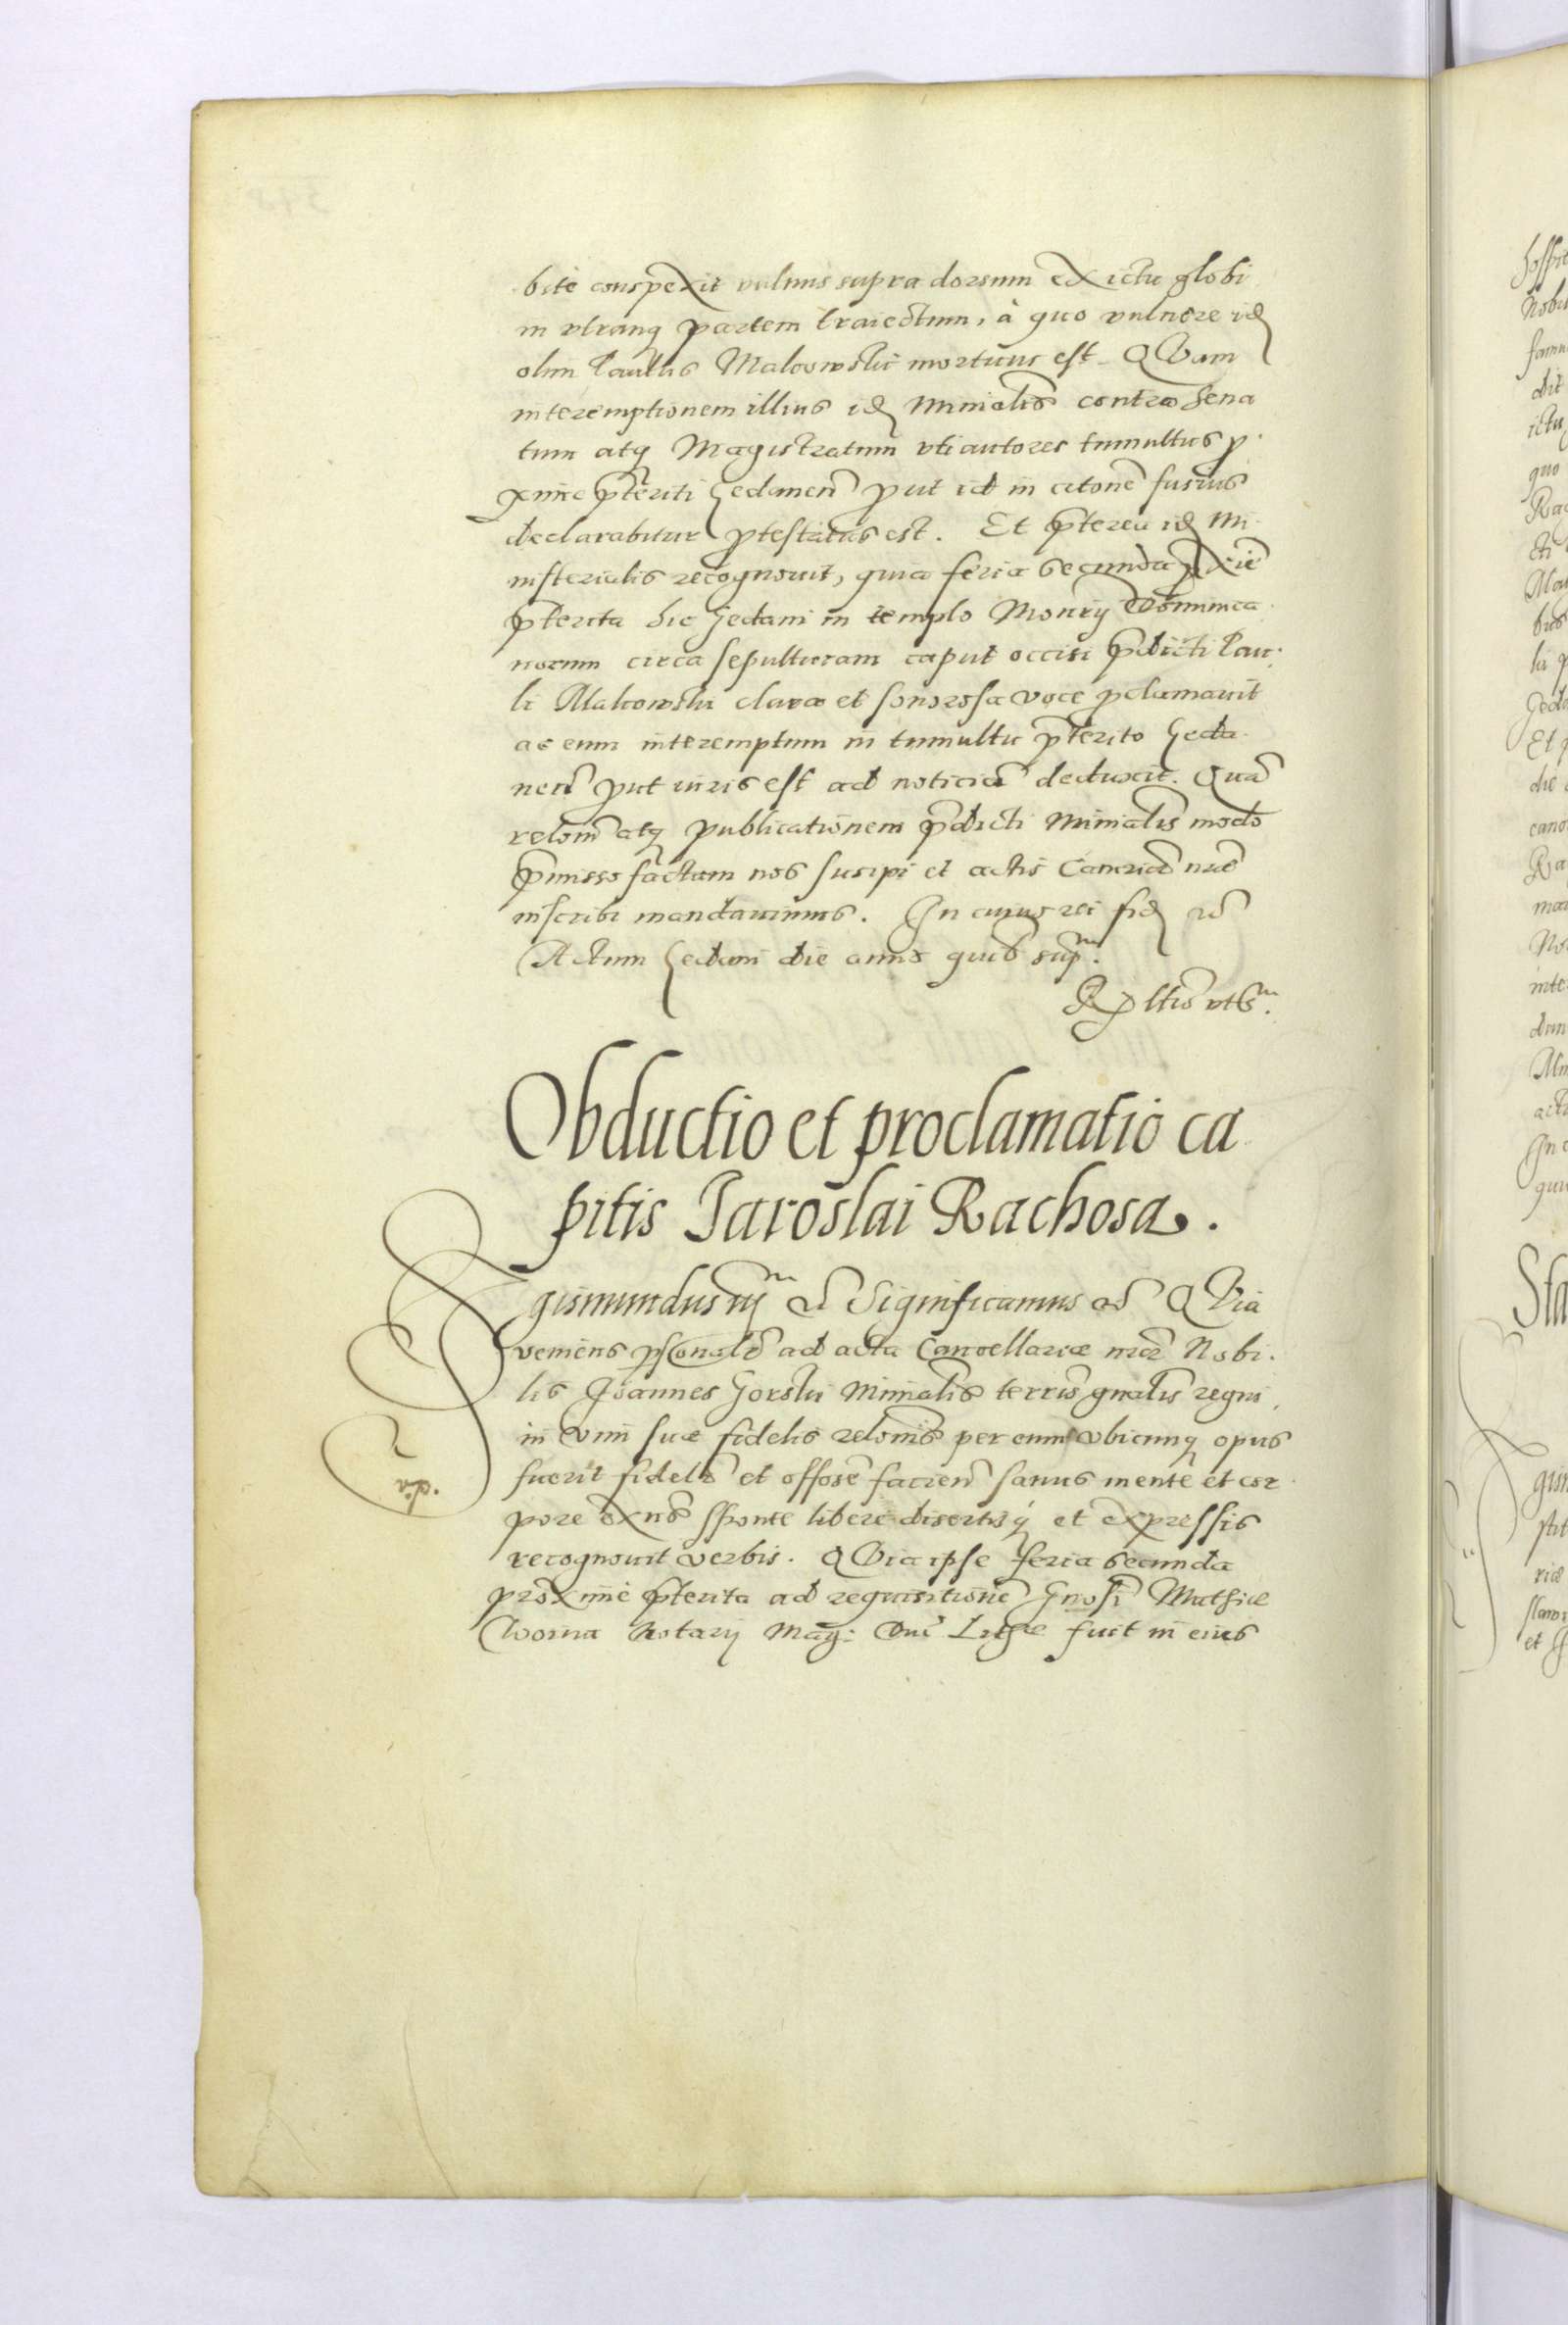 bite conspexit vulnus supra dorsum ex ictu globi
in vtranq partem traiectum, à quo vulnere id
olim Paulus Malcowski mortuus est. Quam
interemptionem illius id Minialis contra Sena
tum atq Magistratum vti autores tumultus p
xime pteriti Gedanen put id in citone fusius
declarabitur ptestatus est. Et pterea id Mi
nisterialis recognouit, quia feria secunda pxie
pterita hic Gedani in templo Monrij Dominica
norum circa sepulturam caput occisi pdicti Pau
li Malcowski clara et sonorosa voce pclamauit
ac eum interemptum in tumultu pterito Geda
nen put iuris est ad noticia deduxit. Qua
relom atq publicationem pdicti Minialis modo
pmisso factam nos suscipi et actis Cancriae nrae
inscribi mandauimus. In cuius rei fid
Actum Gedani die anno quib sup.
Obductio et proclamatio ca
pitis Jaroslai Rachosa.
gismundus iij Significamus Quia
veniens psonalr ad acta Cancellariae nrae Nobi
lis Joannes Gorski Minialis terris gnalis regni
in vim suae fidelis relonis per eum vbicunq opus
fuerit fidelr et offose facien sanus mente et cor
pore exns sponte libere disertisq et expressis
recognouit verbis. Quia ipse feria secunda
proxime pterita ad requisitione Gnosi Mathiae
Woina Notarij Mag: Duc Lithae fuit in eius